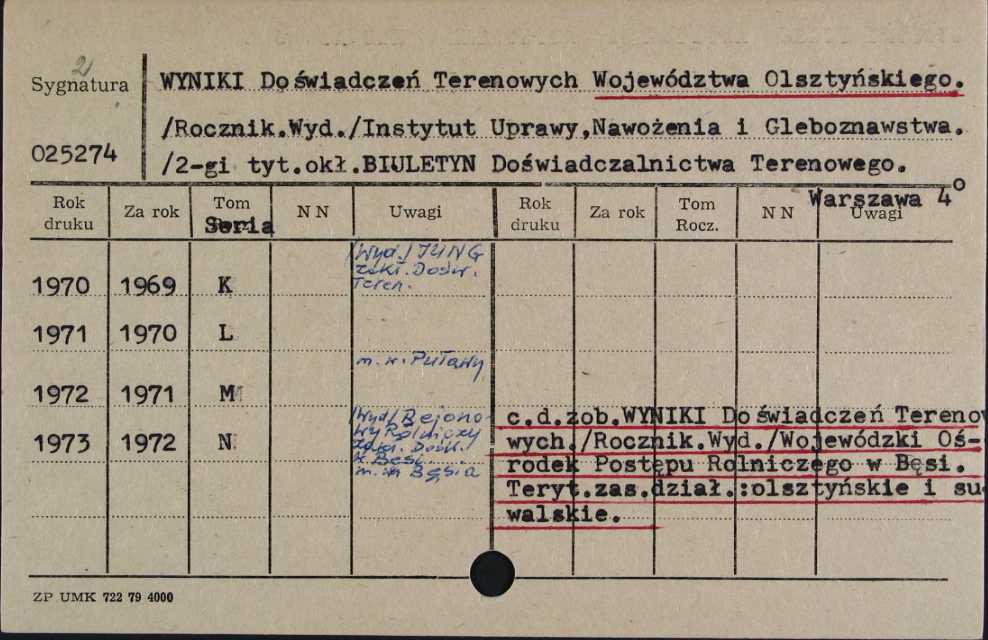 2
Sygnatura
WYNIKI Doświadczeń Terenowych Województwa Olsztyńskiego.
/Rocznik.Wyd./Instytut Uprawy,Nawożenia i Gleboznawstwa.
025274
/2-gi tyt.okł.BIULETYN Doświadczalnictwa Terenowego.
Warszawa 4°
Rok druku Za rok Tom Seria N N Uwagi Rok druku Za rok Tom Rocz. N N Uwagi
/Wyd./ IUNG
Zakł. Dośw.
Teren.
1970 1969 K
1971 1970 L
m. w. Puławy
1972 1971 M
/Wyd/ Rejono-
wy Rolniczy
w Bęsi
m. w Bęsia
1973 1972 N
c.d.zob.WYNIKI Doświadczeń Tereno
wych./Rocznik.Wyd./Wojewódzki Oś-
rodek Postępu Rolniczego w Bęsi.
Teryt.zas.dział.:olsztyńskie i su-
walskie.
ZP UMK 722 79 4000